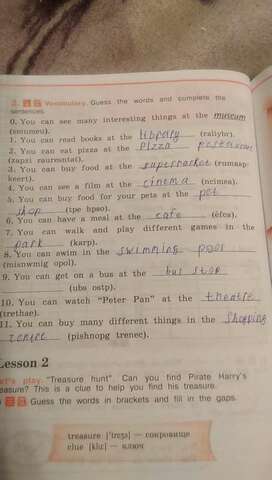 2. Vocabulary. Guess the words and complete the
sentences.
0. You can see many interesting things at the museum
(smumeu).
1. You can read books at the library (raliybr).
2. You can eat pizza at the pizza
(zapzi raurentst).
3. You can buy food at the supermarket (rumasp-
keert).
4. You can see a film at the cinema (ncimea).
5. You can buy food for your pets at the pet
shop (tpe hpso).
6. You can have a meal at the cafe (efca).
7. You can walk and play different games in the
park (karp).
8. You can swim in the swimming pool
(misnwmig opol).
9. You can get on a bus at the bus stop
(ubs ostp).
10. You can watch "Peter Pan" at the theatre
(trethae).
11. You can buy many different things in the shopping
centre (pishnopg trenec).
Lesson 2
Let's play. "Treasure hunt" Can you find Pirate Harry's
treasure? This is a clue to help you find his treasure.
Guess the words in brackets and fill in the gaps.
treasure ['treʒə] — сокровище
clue [klu:] — ключ